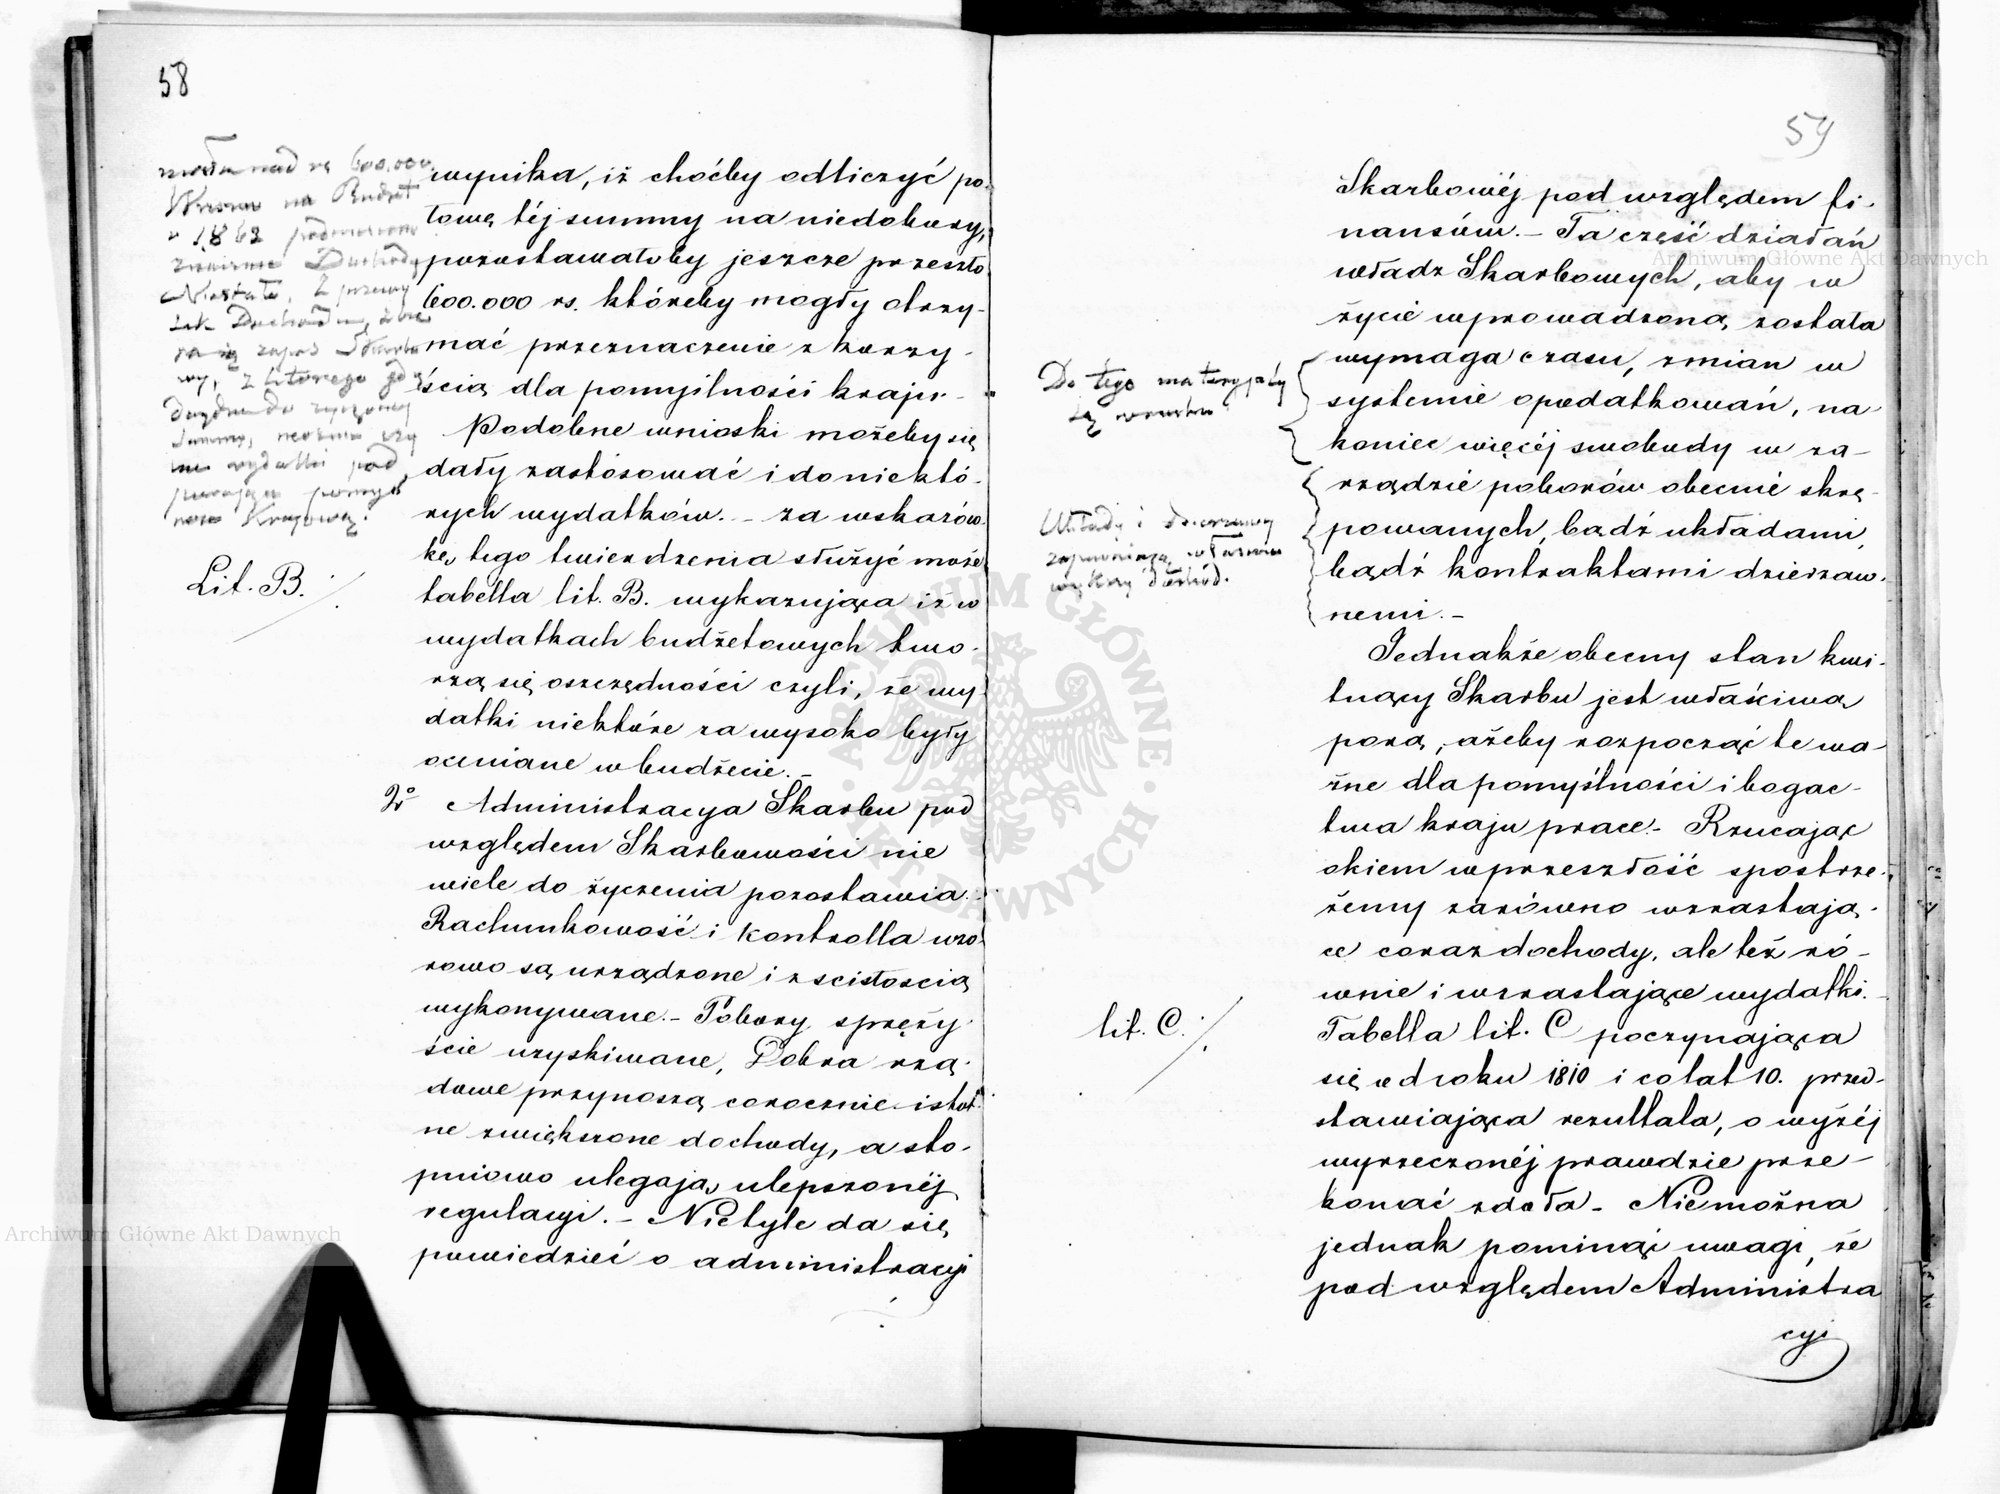 58
600.000
na Budżet
1862
Dochody
Niestałe, z przewy
Skarbo
wy, z którego
summę, można
na wydatki pod
Krajową.
Lit. B.
wynika, iż choćby odliczyć po-
łowę téj summy na niedobory,
pozostawałoby jeszcze przeszło
600.000 rs. któreby mogły otrzy-
mać przeznaczenie z korzy-
ścią dla pomyślności kraju.-
Podobne wnioski możeby się
dały zastósować i do niektó-
rych wydatków. - Za wskazów-
kę tego twierdzenia służyć może
tabella lit. B. wykazująca iż w
wydatkach budżetowych two-
rzą się oszczędności czyli, że wy-
datki niektóre za wysoko były
oceniane w budżecie. -
2º Administracya Skarbu pod
względem Skarbowości nie
wiele do życzenia pozostawia.
Rachunkowość i kontrolla wzo-
rowo są urządzone i z scisłoscią
wykonywane. - Pobory spręży-
ście uzyskiwane, Dobra rzą-
dowe przynoszą corocznie istot-
ne zwiększone dochody, a sto-
pniowo ulegają ulepszonéj
regulacyi. - Nietyle da się
powiedzieć o administracyi
59
Skarbowéj pod względem fi-
nansów. - Ta część działań
władz Skarbowych, aby w
życie wprowadzoną została
wymaga czasu, zmian w
systemie opodatkowań, na-
koniec więcéj swobody w za-
rządzie poborów obecnie skrę-
powanych, bądź układami,
bądź kontraktami dzierzaw-
nemi. -
Do tego materyały
są
Układy i dzierzawy
zapewniają właśnie
większy dochód.
Jednakże obecny stan kwi-
tnący Skarbu jest właściwą
porą, ażeby rozpocząć te wa-
żne dla pomyślności i bogac-
twa kraju prace. - Rzucając
okiem w przeszłość spostrze-
żemy zarówno wzrastają-
ce coraz dochody, ale też ró-
wnie i wzrastające wydatki. -
lit. C.
Tabella lit. C poczynająca
się od roku 1810 i co lat 10. przed-
stawiająca rezultata, o wyżéj
wyrzeczonéj prawdzie prze-
konać zdoła - Nie można
jednak pominąć uwagi, że
pod względem Administra
cyi
Archiwum Główne Akt Dawnych
Archiwum Główne Akt Dawnych
ARCHIWUM GŁÓWNE AKT DAWNYCH